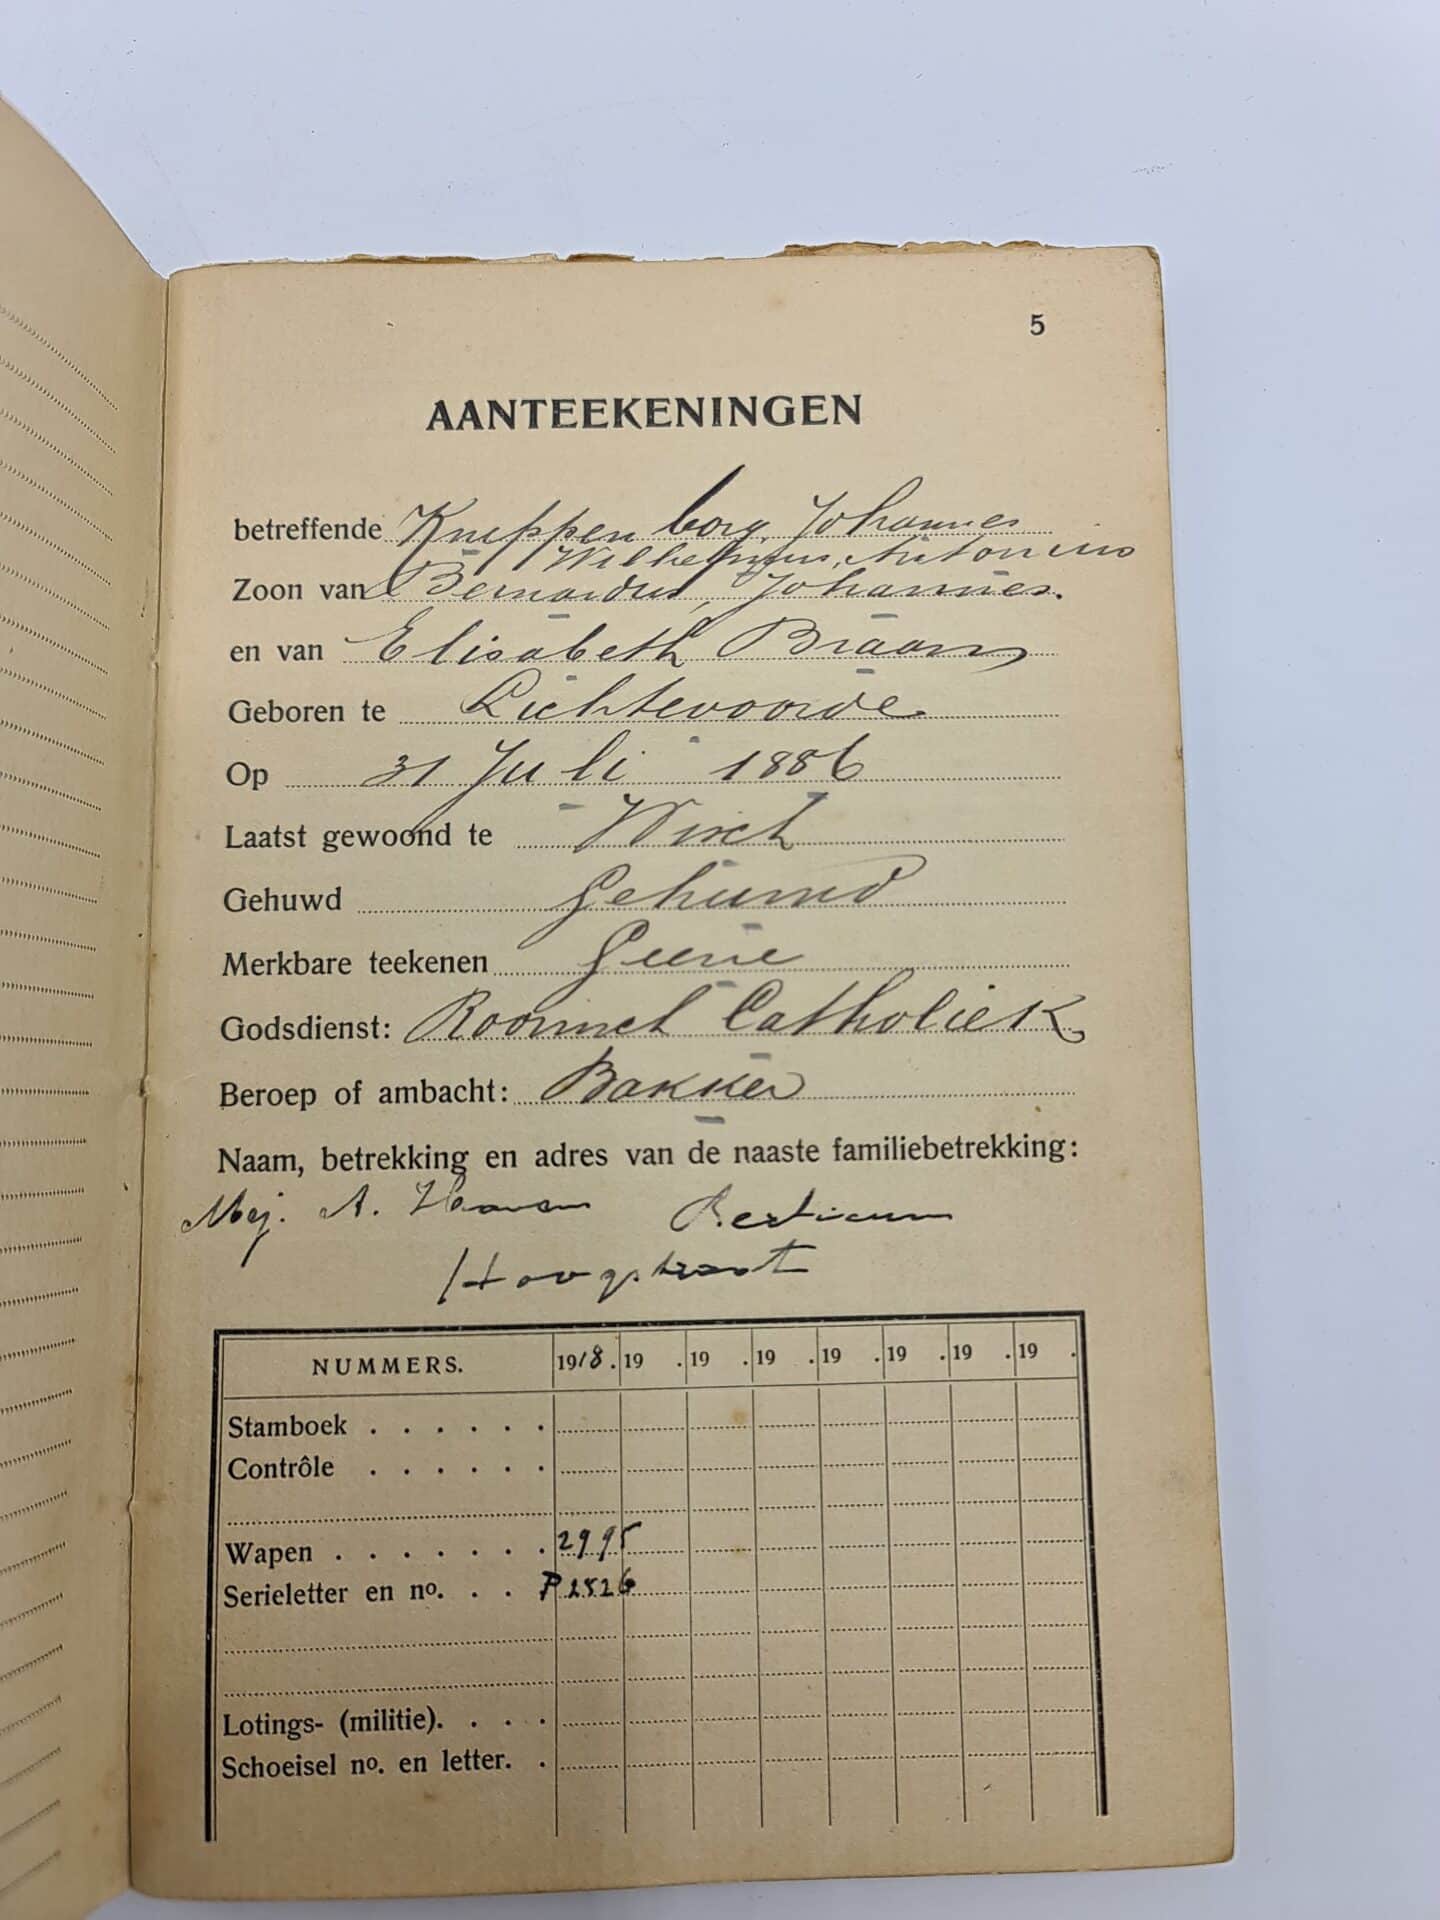 5
AANTEEKENINGEN
betreffende Knippenborg, Johannes
Wilhelmus, Antonius
Zoon van Bernardus, Johannes.
en van Elisabeth Braam
Geboren te Lichtevoorde
Op 31 Juli 1886
Laatst gewoond te Wisch
Gehuwd Gehuwd
Merkbare teekenen Geene
Godsdienst: Roomsch Catholiek
Beroep of ambacht: Bakker
Naam, betrekking en adres van de naaste familiebetrekking:
Mej. A.
Hoogstraat
NUMMERS. 1918. 19 . 19 . 19 . 19 . 19 . 19 . 19 .
Stamboek . . . . . .
Contrôle . . . . . .
Wapen . . . . . . . 2995
Serieletter en no. . . P 2526
Lotings- (militie). . . .
Schoeisel no. en letter. .